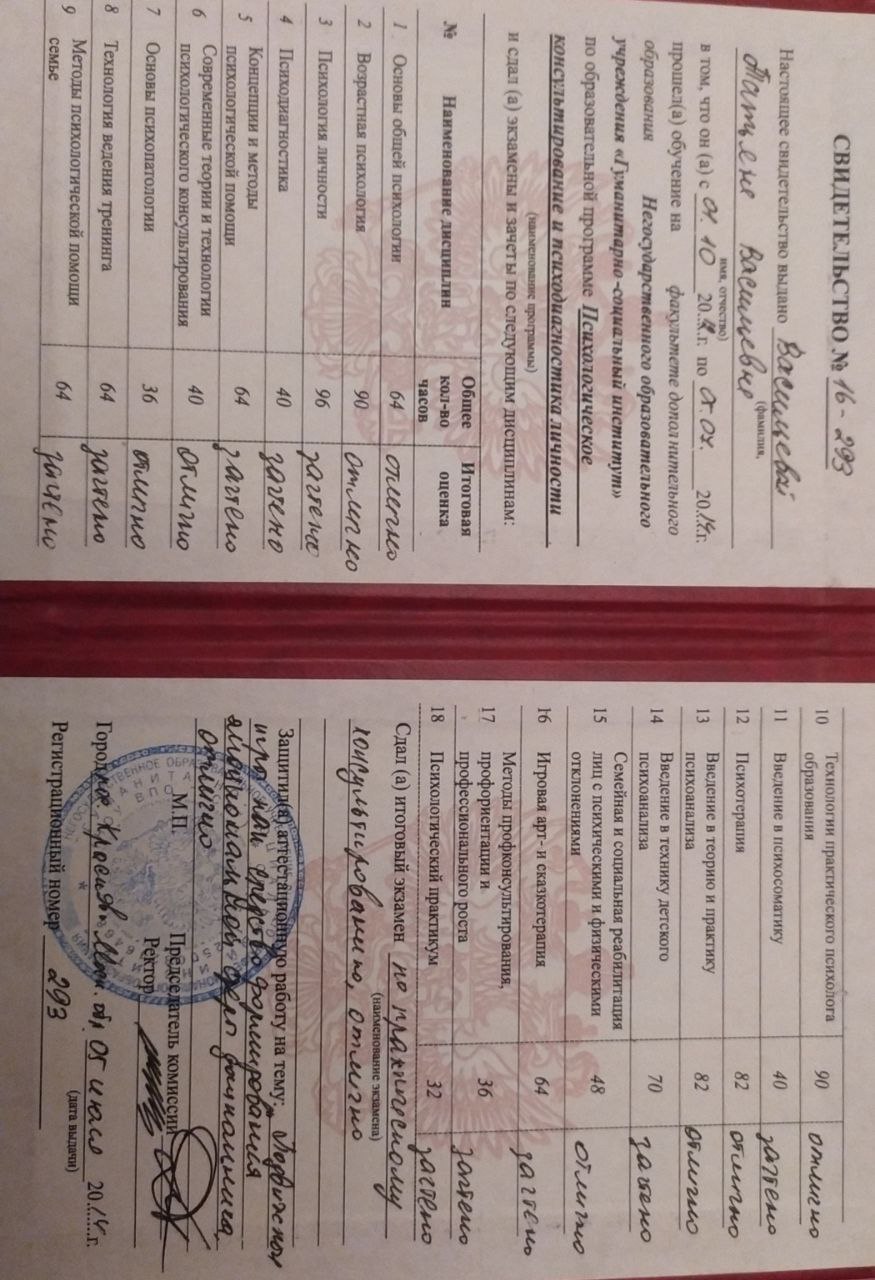 СВИДЕТЕЛЬСТВО № 16-293
Настоящее свидетельство выдано Васильевой
(фамилия,
Татьяне Васильевне
имя, отчество)
в том, что он (а) с 01.10 20 г. по 20 14 г.
прошел(а) обучение на факультете дополнительного
образования Негосударственного образовательного
учреждения «Гуманитарно-социальный институт»
по образовательной программе Психологическое
(наименование программы)
консультирование и психодиагностика личности
и сдал (а) экзамены и зачеты по следующим дисциплинам:
№ Наименование дисциплин Общее кол-во часов Итоговая оценка
1 Основы общей психологии 64 отлично
2 Возрастная психология 90 отлично
3 Психология личности 96 зачтено
4 Психодиагностика 40 зачтено
5 Концепции и методы
психологической помощи 64 зачтено
6 Современные теории и технологии
психологического консультирования 40 отлично
7 Основы психопатологии 36 отлично
8 Технология ведения тренинга 64 зачтено
9 Методы психологической помощи
семье 64 зачтено
10 Технологии практического психолога
образования 90 отлично
11 Введение в психосоматику 40 зачтено
12 Психотерапия 82 отлично
13 Введение в теорию и практику
психоанализа 82 отлично
14 Введение в технику детского
психоанализа 70 зачтено
15 Семейная и социальная реабилитация
лиц с психическими и физическими
отклонениями 48 отлично
16 Игровая арт- и сказкотерапия 64 зачтено
17 Методы профконсультирования,
профориентации и
профессионального роста 36 зачтено
18 Психологический практикум 32 зачтено
Сдал (а) итоговый экзамен по практическому
(наименование экзамена)
консультированию, отлично
Защитил(а) аттестационную работу на тему: "Подвижная
игра как средство формирования
эмоциональной сферы дошкольника,
отлично
М.П. Председатель комиссии
Ректор
Город Красково Мос. обл 05 июля 20 14 г.
(дата выдачи)
Регистрационный номер 293